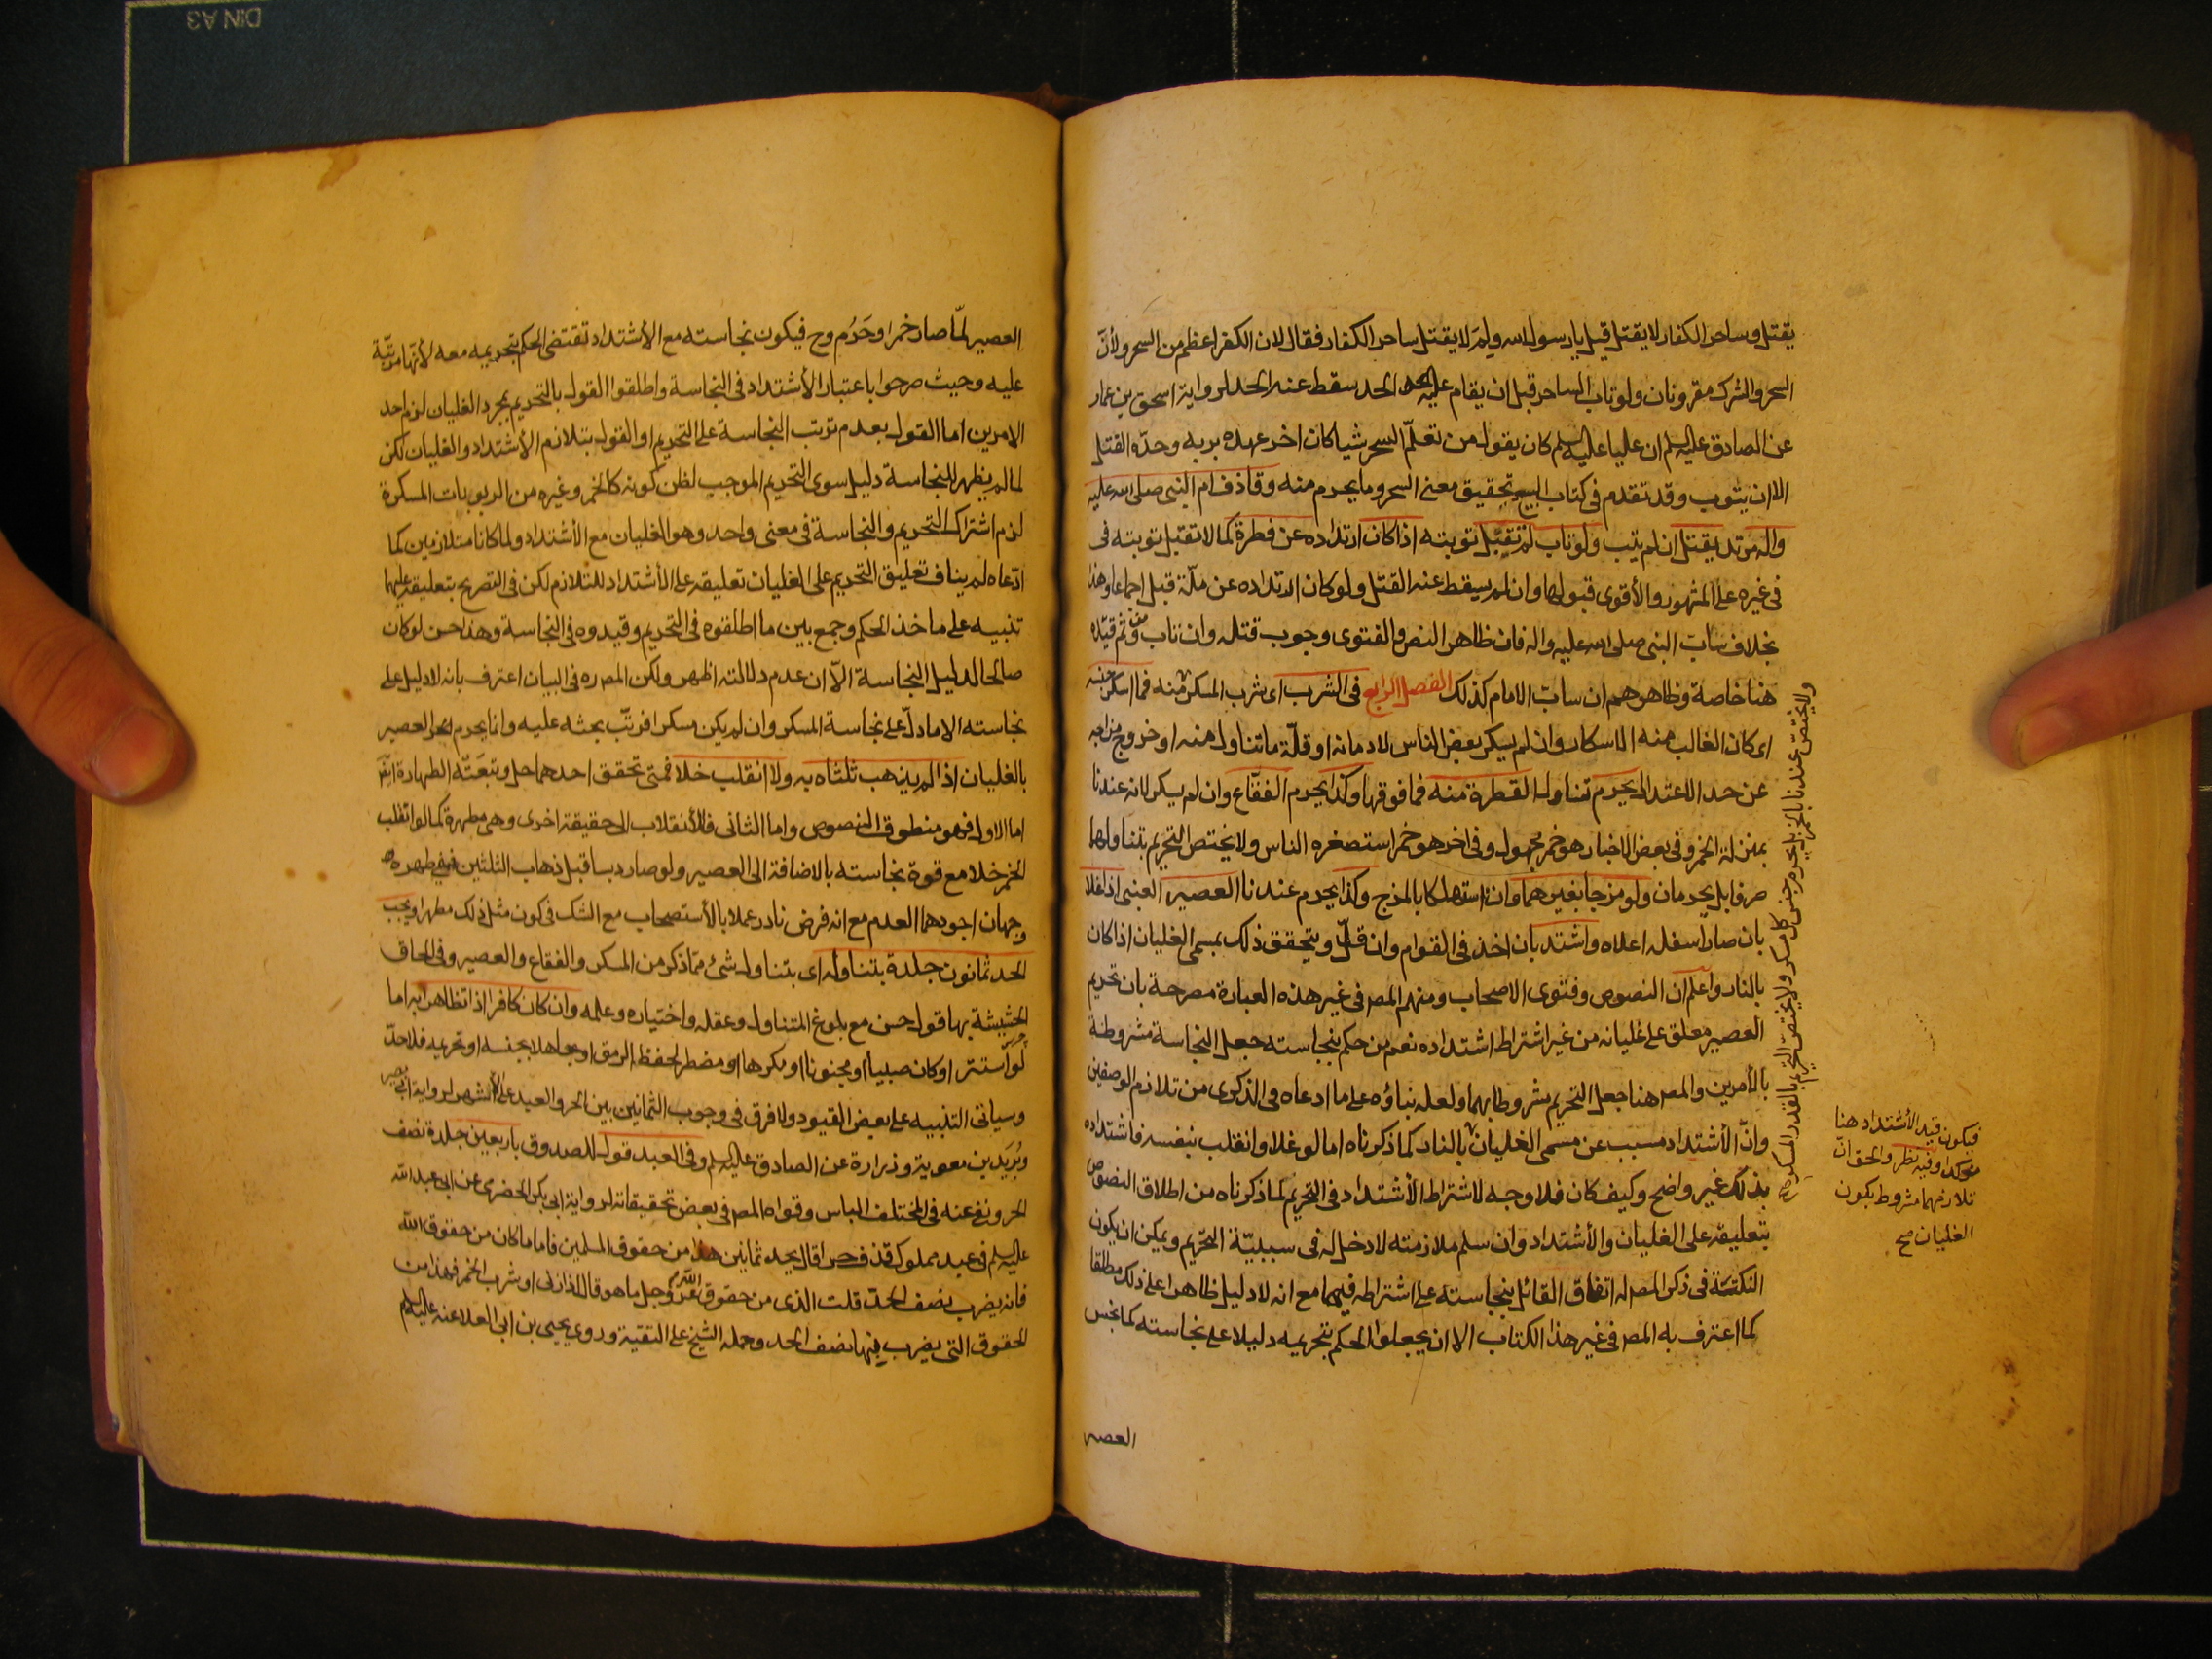 يقتل وساحر الكفار لا يقتل قيل يا رسول الله ولم لا يقتل ساحر الكفار فقال لان الكفر اعظم من السحر ولأنّ
السحر والشرك مقرونان ولو تاب الساحر قبل ان يقام عليه الحد سقط عنه الحد لرواية اسحق بن عمار
عن الصادق عليه السلم ان عليا عليه السلم كان يقول من تعلّم السحر شيا كان اخر عهده بربه وحدّه القتل
الا ان يتوب وقد تقدم فى كتاب البيع تحقيق معنى السحر وما يحرم منه وقاذف ام النبى صلى الله عليه
واله مرتد يقتل ان لم يتب ولو تاب لم تقبل توبته اذا كان ارتداده عن فطرة كما لا تقبل توبته فى
فى غيره على المشهور والأقوى قبولها وان لم يسقط عنه القتل ولو كان ارتداده عن ملّة قبل اجماعا وهذا
بخلاف سابّ النبى صلى الله عليه واله فان ظاهر النص والفتوى وجوب قتله وان تاب ومن ثم قيّده
هنا خاصة وظاهرهم ان سابّ الامام كذلك الفصل الرابع فى الشرب اى شرب المسكر منه فما اسكر جنسه
اى كان الغالب منه الاسكار وان لم يسكر بعض الناس لادمانه او قلّة ما تناول منه او خروج مزاجه
عن حد الاعتدال يحرم تناول القطرة منه فما فوقها وكذا يحرم الفقّاع وان لم يسكر لانه عندنا
بمنزلة الخمر وفى بعض الاخبار هو خمر مجهول وفى اخر هو خمر استصغره الناس ولا يختص التحريم بتناولهما
صرفا بل يحرمان ولو مزجا بغيرهما وان استهلكا بالمزج وكذا يحرم عندنا العصير العنبى اذا غلا
بان صار اسفله اعلاه واشتد بان اخذ فى القوام وان قلّ ويتحقق ذلك بمسمى الغليان اذا كان
بالنار واعلم ان النصوص وفتوى الاصحاب ومنهم المص فى غير هذه العبارة مصرحة بان تحريم
العصير معلق على غليانه من غير اشتراط اشتداده نعم من حكم بنجاسته جعل النجاسة مشروطة
بالأمرين والمص هنا جعل التحريم مشروطا بهما ولعله بناؤه على ما ادعاه فى الذكرى من تلازم الوصفين
وانّ الأشتداد مسبب عن مسمى الغليان بالنار كما ذكرناه اما لو غلا وانقلب بنفسه فاشتداده
بذلك غير واضح وكيف كان فلا وجه لاشتراط الأشتداد فى التحريم لما ذكرناه من اطلاق النصوص
بتعليقه على الغليان والأشتداد وان سلم ملازمته لا دخل له فى سببيّة التحريم ويمكن ان يكون
النكتة فى ذكر المص له اتفاق القائل بنجاسته على اشتراطه فيها مع انه لا دليل ظاهرا على ذلك مطلقا
كما اعترف به المص فى غير هذا الكتاب الا ان يجعلوا الحكم بتحريمه دليلا على نجاسته كما نجس
العصير
ولا يختصّ عندنا بالخمر بل يحرم جنس كل مسكر ولا يختصّ التحريم بالقدر المسكر منه
فيكون قيد الأشتداد هنا
مؤكدا وفيه نظر والحق انّ
تلازمهما مشروط بكون
الغليان صح
العصير لمّا صار خمرا وحَرُم وح فيكون نجاسته مع الأشتداد تقتضى الحكم بتحريمه معه لأنّها مرتبّة
عليه وحيث صرحوا باعتبار الأشتداد فى النجاسة واطلقوا القول بالتحريم بمجرد الغليان لزم احد
الامرين اما القول بعدم ترتب النجاسة على التحريم او القول بتلازم الأشتداد والغليان لكن
لما لم يظهر للنجاسة دليل سوى التحريم الموجب لظن كونه كالخمر وغيره من الربوبات المسكرة
لزم اشتراك التحريم والنجاسة فى معنى واحد وهو الغليان مع الأشتداد ولما كانا متلازمين كما
ادّعاه لم يناف تعليق التحريم على الغليان تعليقه على الأشتداد للتلازم لكن فى التصريح بتعليقه عليهما
تنبيه على ماخذ الحكم وجمع بين ما اطلقوه فى التحريم وقيدوه فى النجاسة وهذا حسن لو كان
صالحا لدليل النجاسة الّا ان عدم دلالته اظهر ولكن المص ره فى البيان اعترف بانه لا دليل على
نجاسته الا ما دلّ على نجاسة المسكر وان لم يكن مسكرا فرتّب بحثه عليه وانما يحرم العصير
بالغليان اذا لم يذهب ثلثاه به ولا انقلب خلا فمتى تحقق احدهما حل وتبعَتّه الطهارة ايضا
اما الاول فهو منطوق النصوص واما الثانى فللأنقلاب الى حقيقة اخرى وهى مطهرة كما لو انقلب
الخمر خلا مع قوة نجاسته بالاضافة الى العصير ولو صار دبسا قبل ذهاب الثلثين ففى طهره
وجهان اجودهما العدم مع انه فرض نادر عملا بالأستصحاب مع الشك فى كون مثل ذلك مطهرا ويجب
الحد ثمانون جلدة بتناوله اى بتناول شئ ممّا ذكر من المسكر والفقاع والعصير وفى الحاق
الحشيشة بها قول حسن مع بلوغ المتناول وعقله واختياره وعلمه وان كان كافرا اذا تظاهر به اما
لو استتر او كان صبيا او مجنونا او مكرها او مضطرا لحفظ الرمق او جاهلا بجنسه او تحريمه فلا حدّ
وسياتى التنبيه على بعض القيود ولا فرق فى وجوب الثمانين بين الحر والعبد على الأشهر لرواية ابى بصير
وبُرَيَد بن معوية وزرارة عن الصادق عليه السلم وفى العبد قول للصدوق باربعين جلدة نصف
الحر ونفى عنه فى المختلف الباس وقواه المص فى بعض تحقيقاته لرواية ابى بكر الحضرمى عن ابى عبد الله
عليه السلم فى عبد مملوك قذف حرا قال يحد ثمانين هذا من حقوق المسلمين فاما ما كان من حقوق الله
فانه يضرب نصف الحدّ قلت الذى من حقوق الله عزّ وجل ما هو قال اذا زنى او شرب الخمر فهذا من
الحقوق التى يضرب فيها نصف الحد وحمله الشيخ على التقية وروى يحيى بن ابى العلا عنه عليه السلم